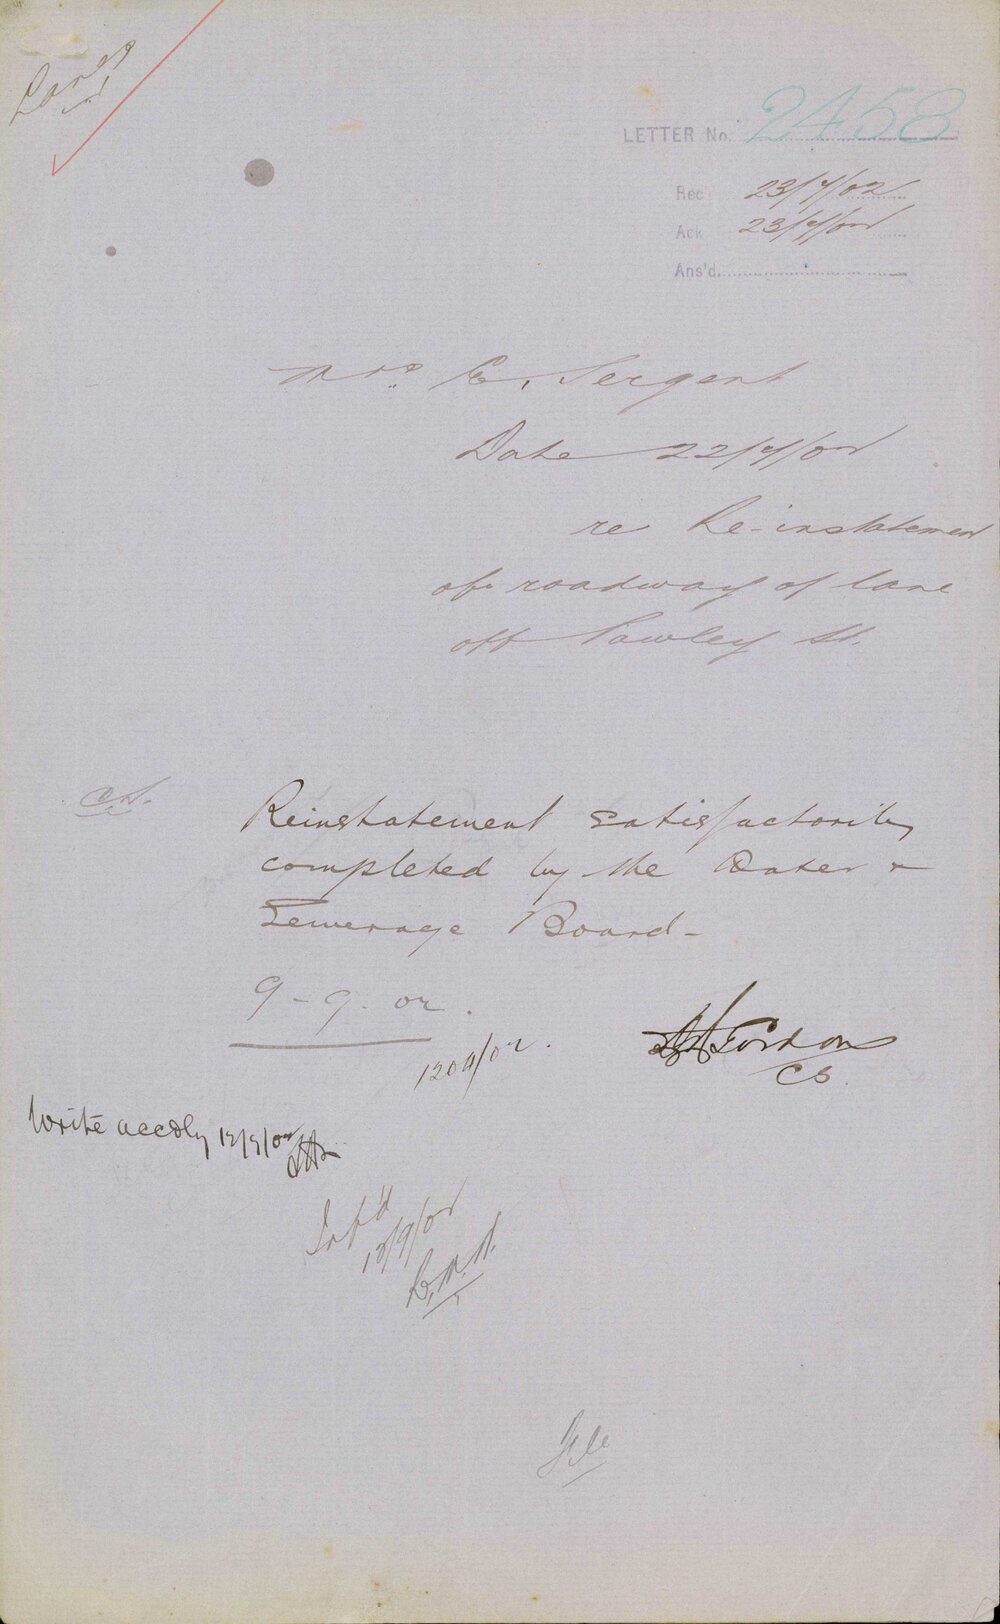 Lanes
LETTER No. 2458
Rec 23/7/02
Ack 23/7/02
Ans'd.
Mrs. E. Sergent
Date 22/7/02
re Re-instatement
of roadway of lane
off Pawley St.
C.S.
Reinstatement satisfactorily
completed by the Water &
Sewerage Board-
9-9-02.
1204/02.
Gordon
CS.
Write accdly 12/9/02
Inf'd
12/9/02
File